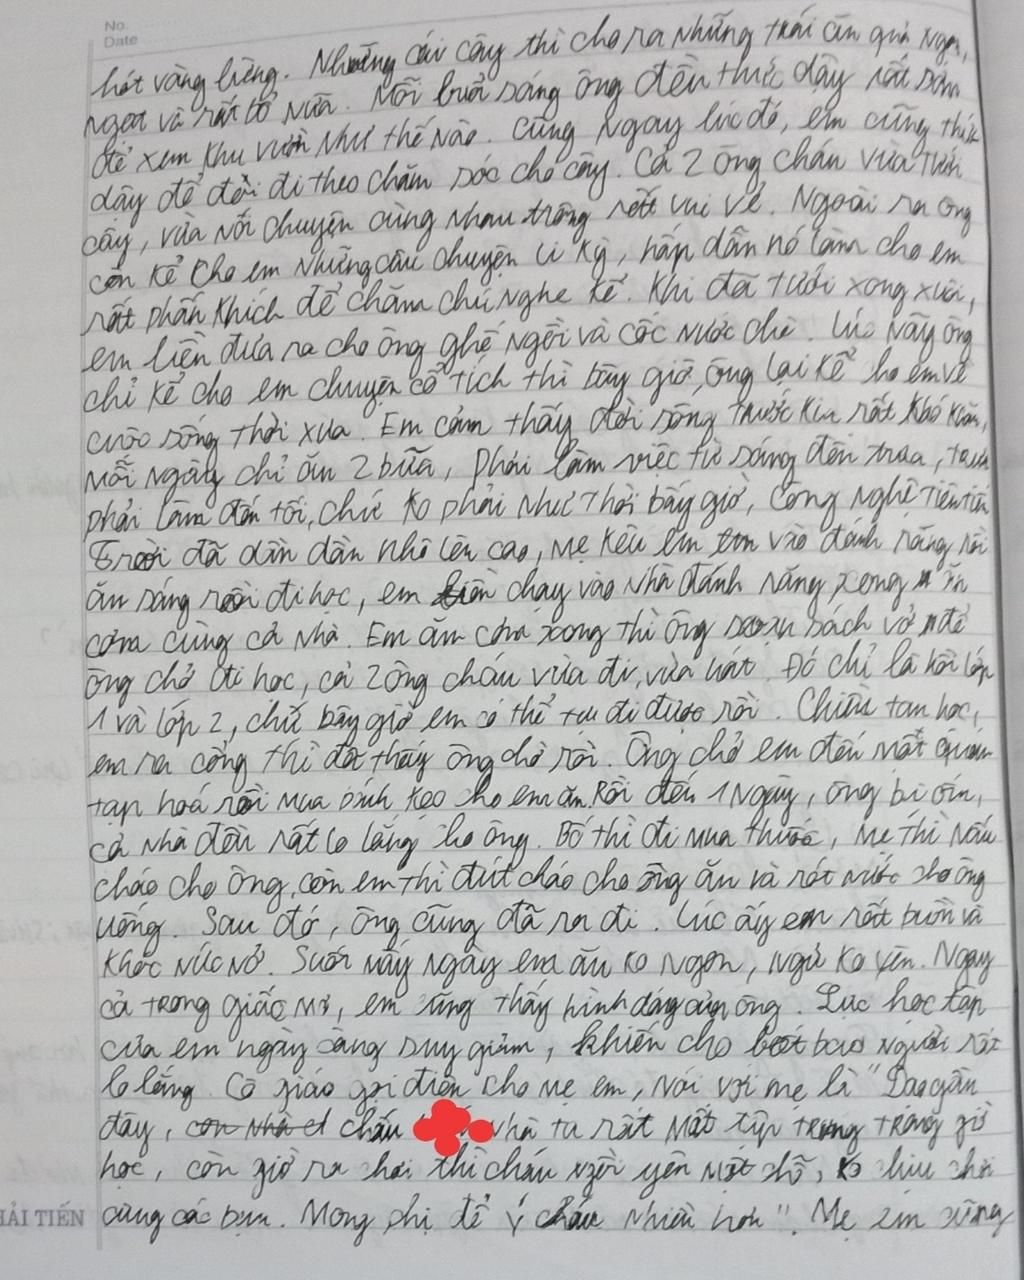 No.
Date
hót vàng liềng. Những cái cây thì cho ra những trái ăn quả ngon,
ngọt và rất bổ nữa. Mỗi buổi sáng ông đều thức dậy rất sớm
để xem khu vườn như thế nào. Cũng ngay lúc đó, em cũng thức
dậy để đi theo chăm sóc cho cây. Cả 2 ông cháu vừa tưới
cây, vừa nói chuyện cùng nhau trông rất vui vẻ. Ngoài ra ông
còn kể cho em những câu chuyện li kỳ, hấp dẫn nó làm cho em
rất phấn khích để chăm chú nghe kể. Khi đã tưới xong xuôi,
em liền đưa ra cho ông ghế ngồi và cốc nước chè. Lúc nãy ông
chỉ kể cho em chuyện cổ tích thì bây giờ, ông lại kể cho em về
cuộc sống thời xưa. Em cảm thấy đời sống trước kia rất khó khăn,
mỗi ngày chỉ ăn 2 bữa, phải làm việc từ sáng đến trưa, trưa
phải làm đến tối, chứ ko phải như thời bấy giờ, công nghệ tiên tiến
Trời đã dần dần nhô lên cao, mẹ kêu em vào đánh răng rồi
ăn sáng rồi đi học, em liền chạy vào nhà đánh răng xong ăn
cơm cùng cả nhà. Em ăn cơm xong thì ông soạn sách vở để
ông chở đi học, cả 2 ông cháu vừa đi, vừa hát. Đó chỉ là hồi lớp
1 và lớp 2, chứ bây giờ em có thể tự đi được rồi. Chiều tan học,
em ra cổng thì đã thấy ông chờ rồi. Ông chở em đến một quán
tạp hoá rồi mua bánh kẹo cho em ăn. Rồi đến 1 ngày, ông bị ốm,
cả nhà đều rất lo lắng cho ông. Bố thì đi mua thuốc, mẹ thì nấu
cháo cho ông, còn em thì đút cháo cho ông ăn và rót nước cho ông
uống. Sau đó, ông cũng đã ra đi. Lúc ấy em rất buồn và
khóc nức nở. Suốt mấy ngày em ăn ko ngon, ngủ ko yên. Ngay
cả trong giấc mơ, em cũng thấy hình dáng của ông. Lực học tập
của em ngày càng suy giảm, khiến cho bao người rất
lo lắng. Cô giáo gọi điện cho mẹ em, nói với mẹ là "Dạo gần
đây, con nhà cháu nhà ta rất mất tập trung trong giờ
học, còn giờ ra chơi thì cháu ngồi yên một chỗ, ko chịu chơi
cùng các bạn. Mong chị để ý cháu nhiều hơn". Mẹ em cũng
HẢI TIẾN